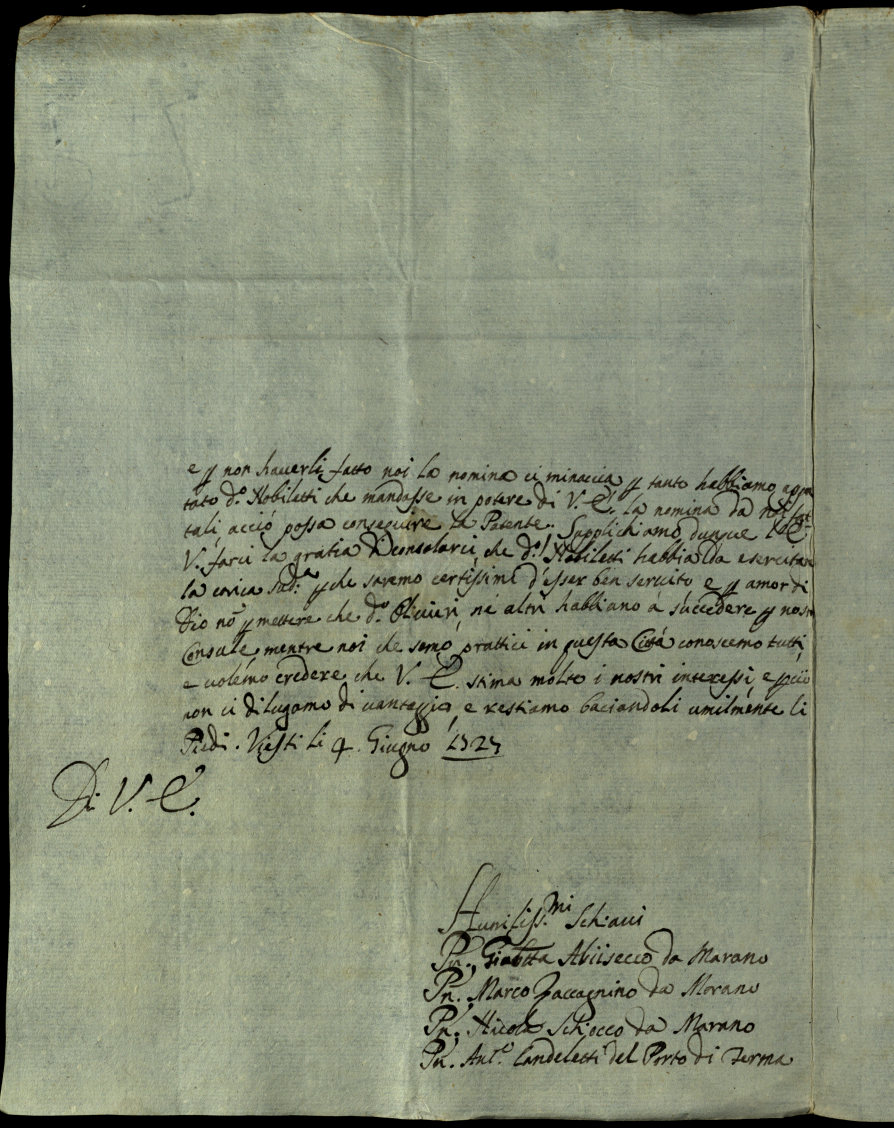 e p non haverli fatto noi la nomina ci minaccia p tanto habbiamo appu
tato d.º Nobiletti che mandasse in potere di V. E. la nomina da noi fat
tali, acciò possa conseguire la Patente. Supplichiamo dunque l'E.
V. farci la gratia di consolarci, che d.º Nobiletti habbia da esercitare
la carica sud.ª p che saremo certissimi d'esser ben servito e p amor di
Dio nõ p mettere che d.º Olivieri, nè altri habbiano à succedere p nostro
Consule, mentre noi che semo prattici in questa Città conoscemo tutti,
e volemo credere che V. E. stima molto i nostri interessi, e p ciò
non ci dilugamo di vantaggio, e restiamo baciandoli umilmente li
Piedi. Viesti li 4 Giugno
Di V. E.
Humiliss.mi Schiavi
Pñ. Giabtta Abiisecco da Marano
Pñ. Marco Zaccagnino da Morano
Pñ. Nicola Schiocco da Marano
Pñ. Ant.º Candeletti del Porto di Ferma